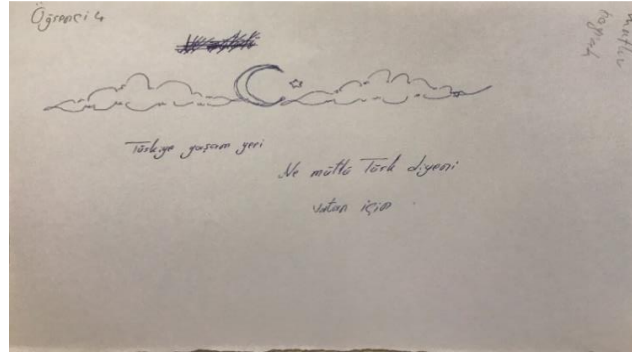 Öğrenci 4
Türkiye yaşam yeri
Ne mütlü Türk diyeni
vatan için